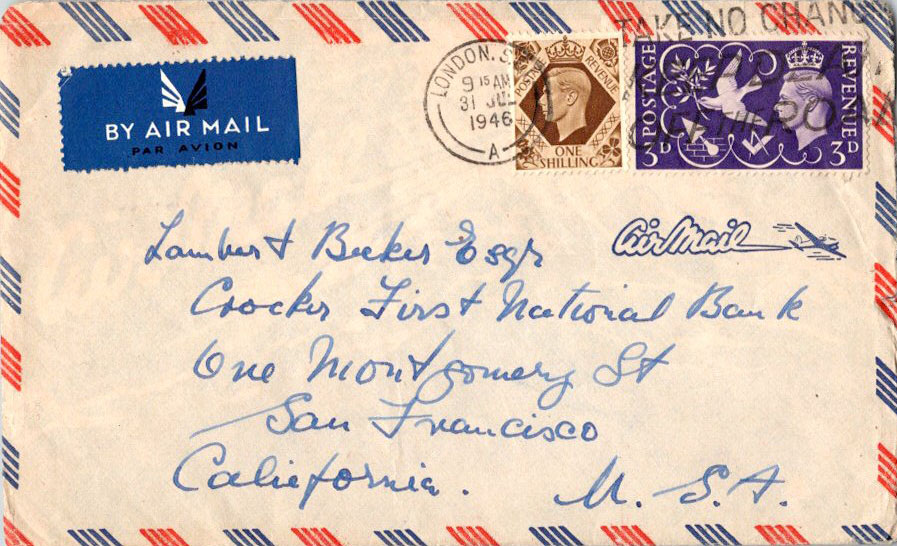 BY AIR MAIL
PAR AVION
LONDON. S
9 15 AM
31 JUL
1946
A
POSTAGE
REVENUE
ONE
SHILLING
POSTAGE
REVENUE
3D
3D
TAKE NO CHANC
ROAD
Air Mail
Lambert Becker Esqr
Crocker First National Bank
One Montgomery St
San Francisco
California.
U.S.A.